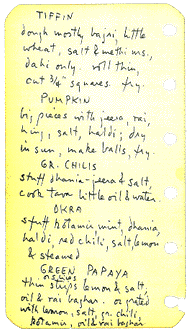 TIFFIN
dough mostly bajri, little
wheat, salt & methi ms,
dahi only. roll thin,
cut 3/4" squares. fry.
PUMPKIN
big pieces with jeera, rai,
hing, salt, haldi; dry
in sun, make balls, fry.
GR. CHILIS
stuff dhania-jeera & salt,
cook tava little oil & water.
OKRA
stuff kotamir mint, dhania,
haldi, red chili, salt lemon
& steamed
GREEN PAPAYA
thin strips lemon & salt,
oil & rai baghar. or grated
with lemon, salt, gr. chili,
kotamir, oil & rai baghar